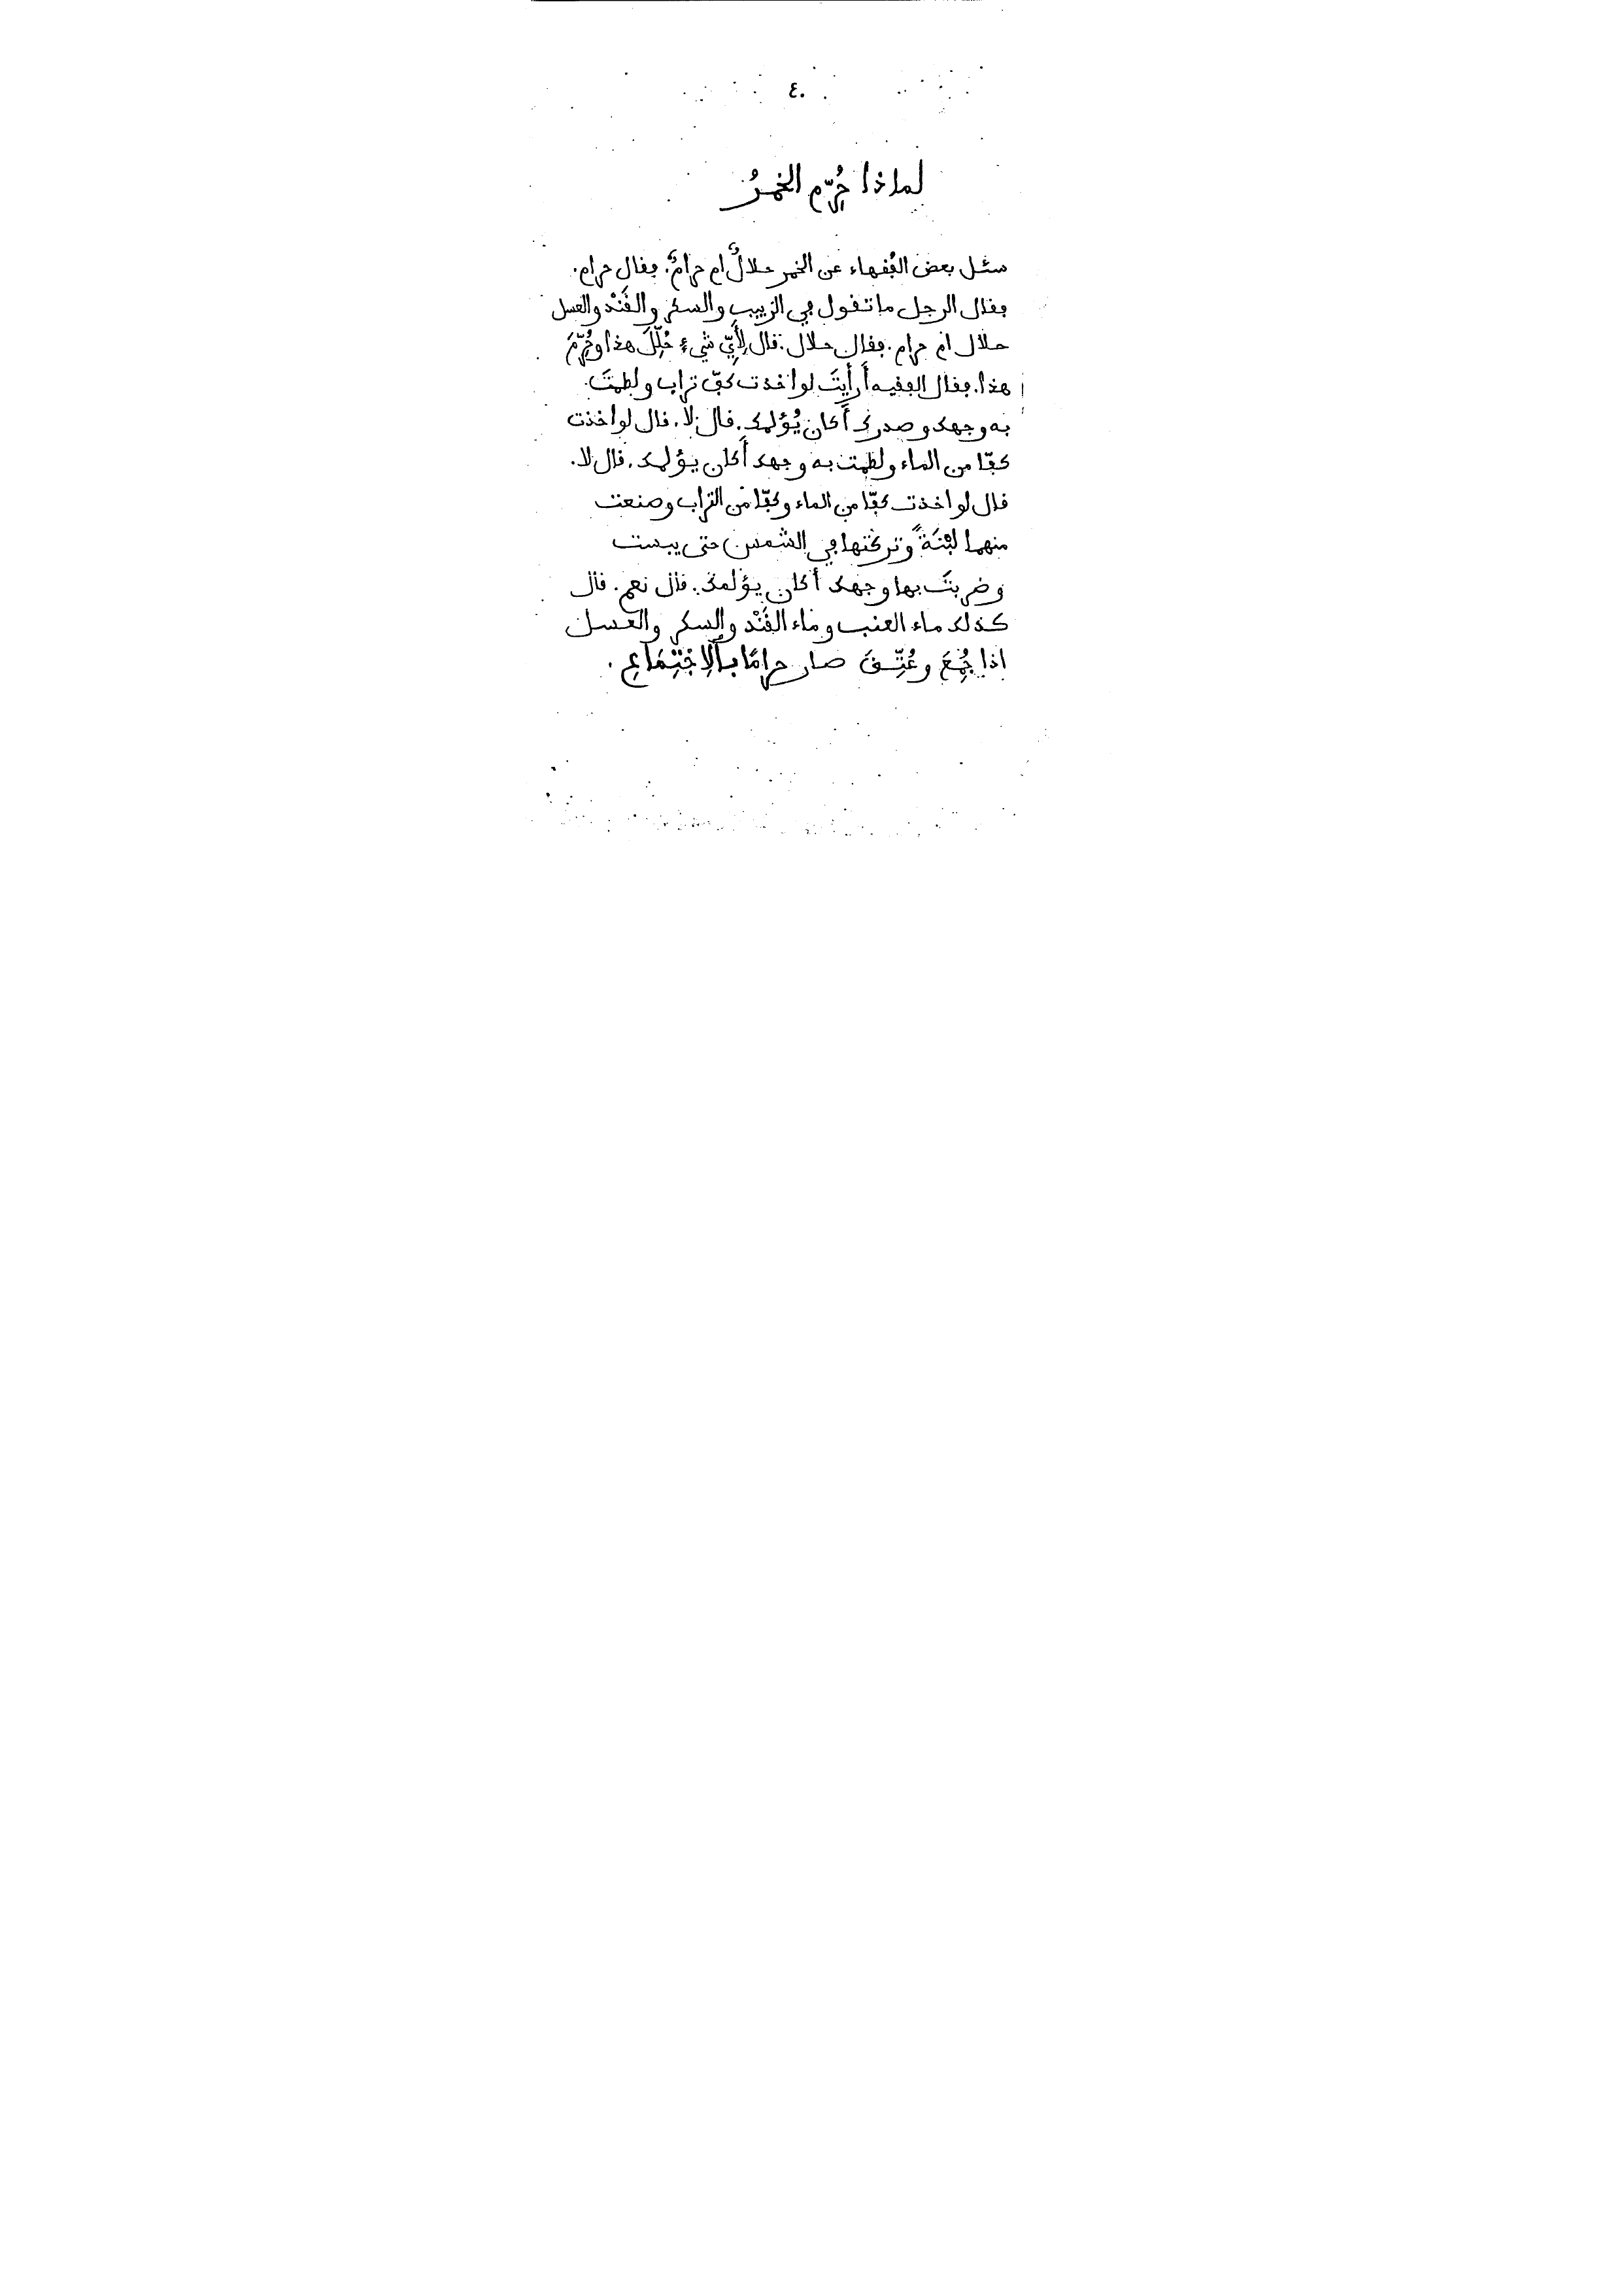 ٤٠
لماذا حُرِّم الخمرُ
سئل بعض الفُقهاء عن الخمر حلالٌ ام حرامٌ. فقال حرام.
فقال الرجل ما تقول في الزبيب والسكر والقَنْد والعسل
حلال ام حرام. فقال حلال. قال لِأَيِّ شيءٍ حُلِّلَ هذا وحُرِّمَ
هذا. فقال الفقيه أَرأَيتَ لو اخذت كفّ تراب ولطمتَ
به وجهك وصدرك أَكان يُؤْلمك. قال لا. قال لو اخذت
كفّا من الماء ولطمت به وجهك أَكان يؤلمك. قال لا.
قال لو اخذت كفّا من الماء وكفّا من التراب وصنعت
منهما لبْنَةً وتركتها في الشمس حتى يبست
وضربتَ بها وجهك أكان يؤلمك. قال نعم. قال
كذلك ماء العنب وماء القَنْد والسكر والعسل
اذا جُمِعَ وعُتِّقَ صار حرامًا بِٱلِٱجْتِمَاعِ.